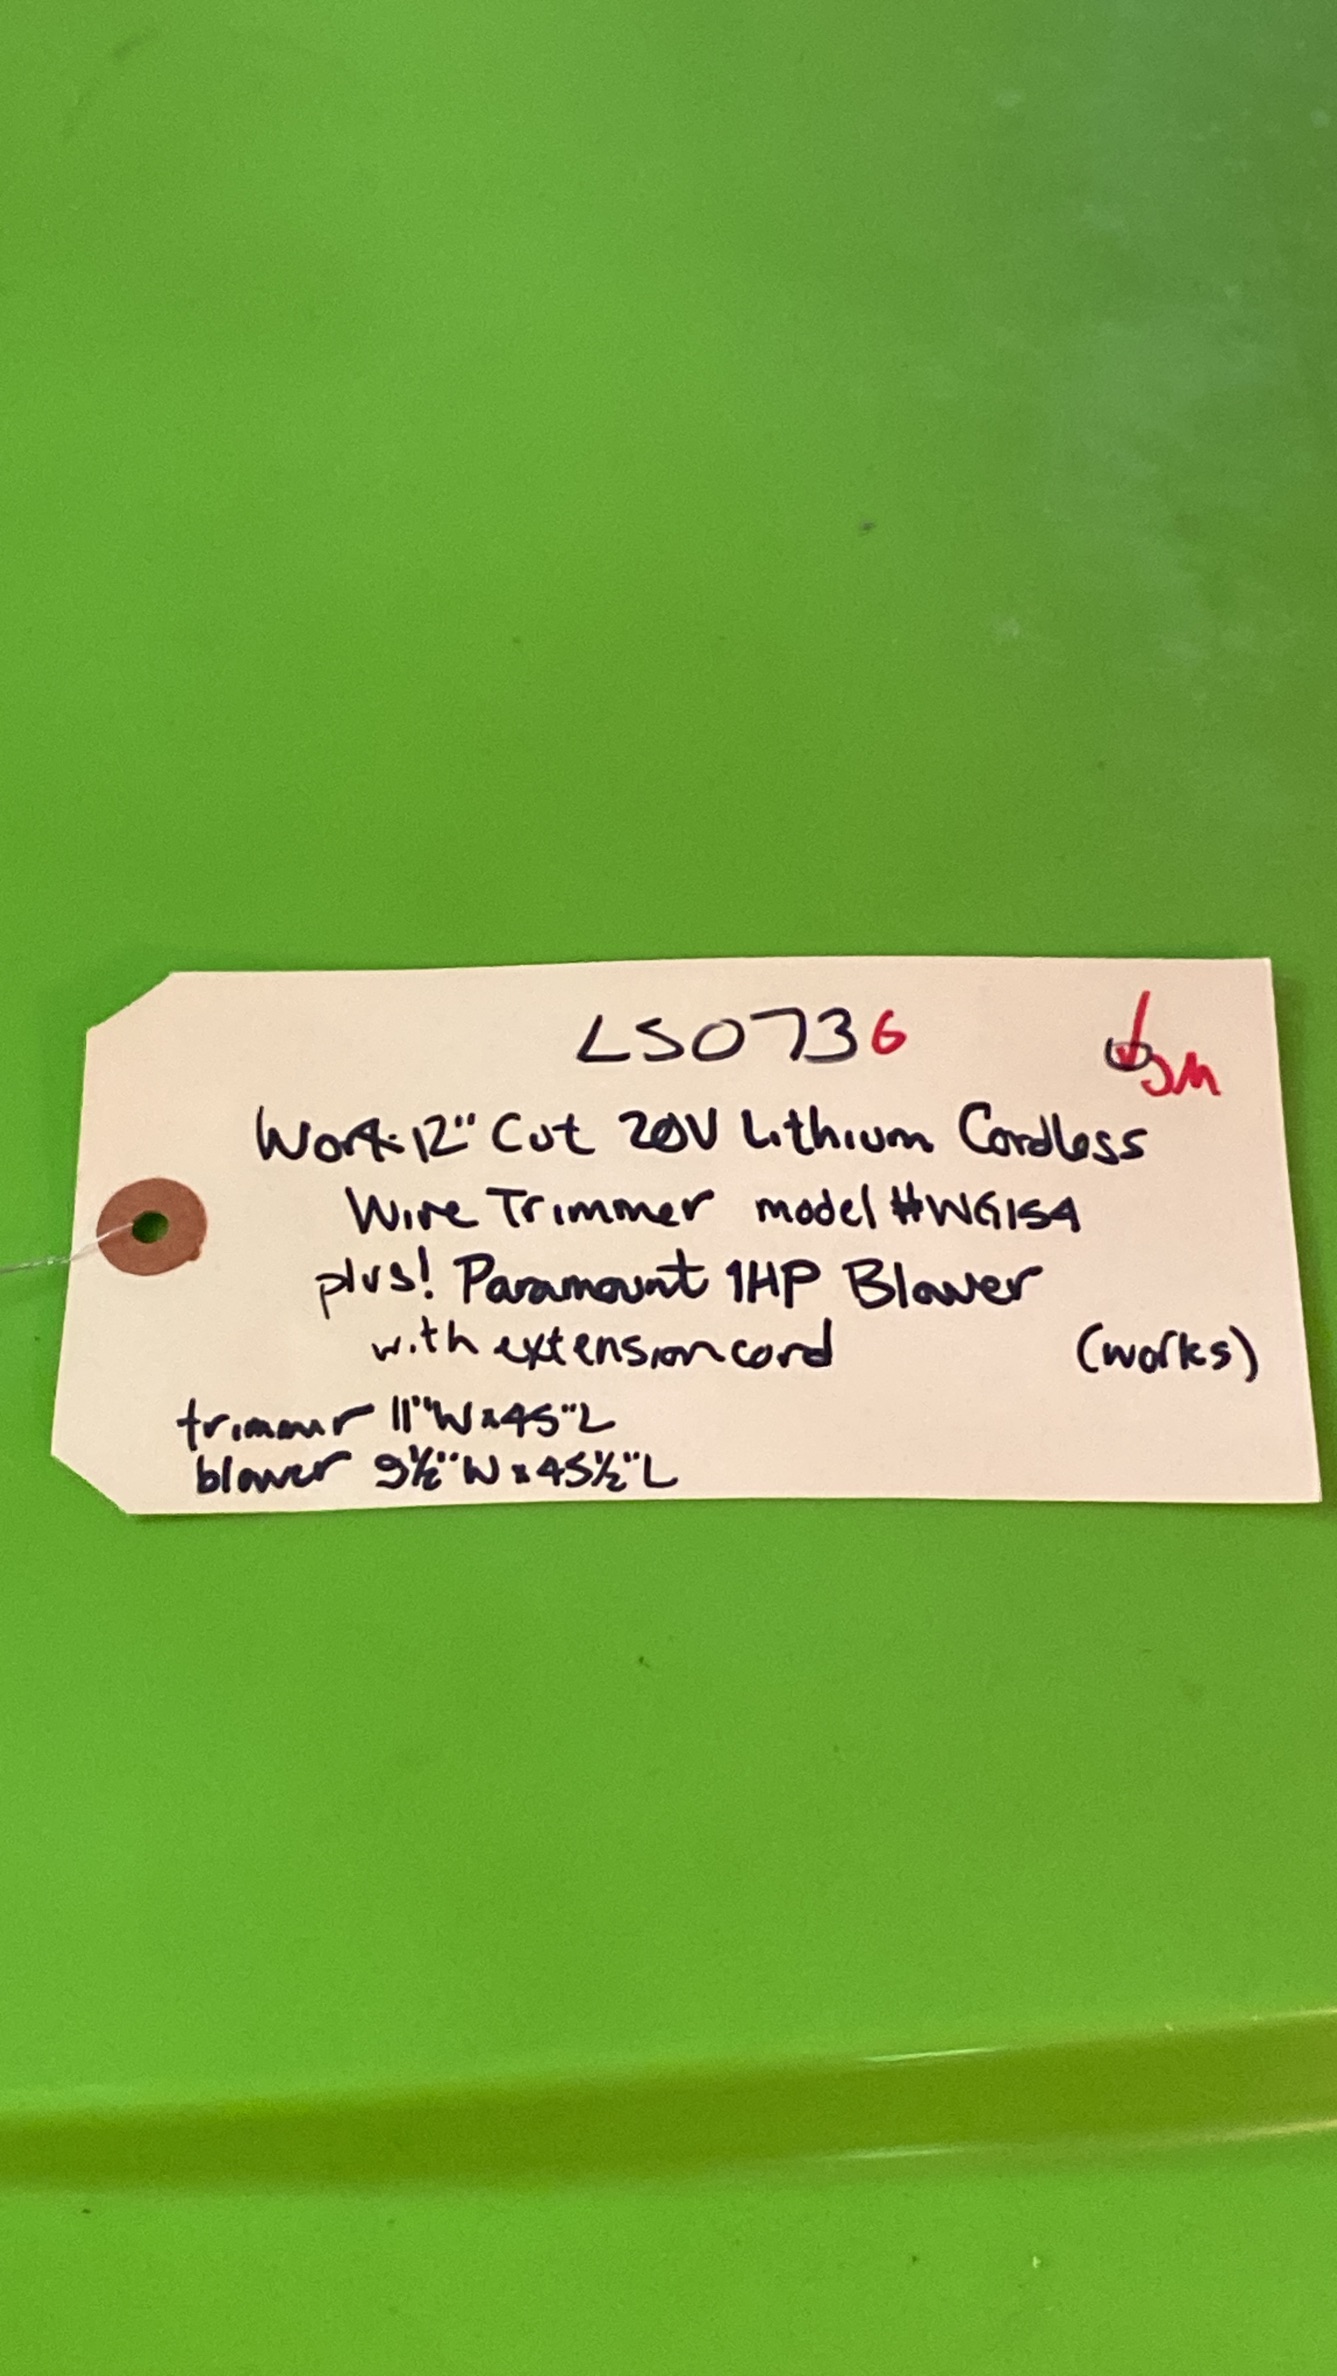 LS0736
Work 12" Cut 20V Lithium Cordless
Wire Trimmer model #WG154
plus! Paramount 1HP Blower
with extension cord (works)
trimmer 11"W x 45"L
blower 9½"W x 45½"L